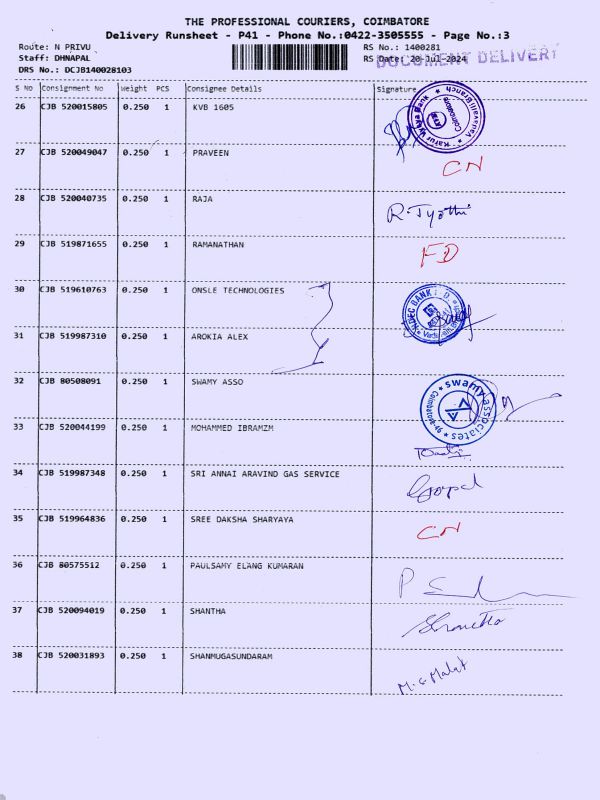 THE PROFESSIONAL COURIERS, COIMBATORE
Delivery Runsheet - P41 - Phone No.:0422-3505555 - Page No.:3
Route: N PRIVU RS No.: 1400281
Staff: DHNAPAL RS Date: 20-Jul-2024 DOCUMENT DELIVERY
DRS No.: DCJB140028103
S NO Consignment No Weight PCS Consignee Details Signature
26 CJB 520015805 0.250 1 KVB 1605
Karur Vysya Bank Coimbatore
27 CJB 520049047 0.250 1 PRAVEEN CN
28 CJB 520040735 0.250 1 RAJA R. Jyothi
29 CJB 519871655 0.250 1 RAMANATHAN FD
30 CJB 519610763 0.250 1 ONSLE TECHNOLOGIES
31 CJB 519987310 0.250 1 AROKIA ALEX
32 CJB 80508091 0.250 1 SWAMY ASSO
swamy associates Coimbatore
33 CJB 520044199 0.250 1 MOHAMMED IBRAMZM
34 CJB 519987348 0.250 1 SRI ANNAI ARAVIND GAS SERVICE Gopal
35 CJB 519964836 0.250 1 SREE DAKSHA SHARYAYA CN
36 CJB 80575512 0.250 1 PAULSAMY ELANG KUMARAN
37 CJB 520094019 0.250 1 SHANTHA
38 CJB 520031893 0.250 1 SHANMUGASUNDARAM